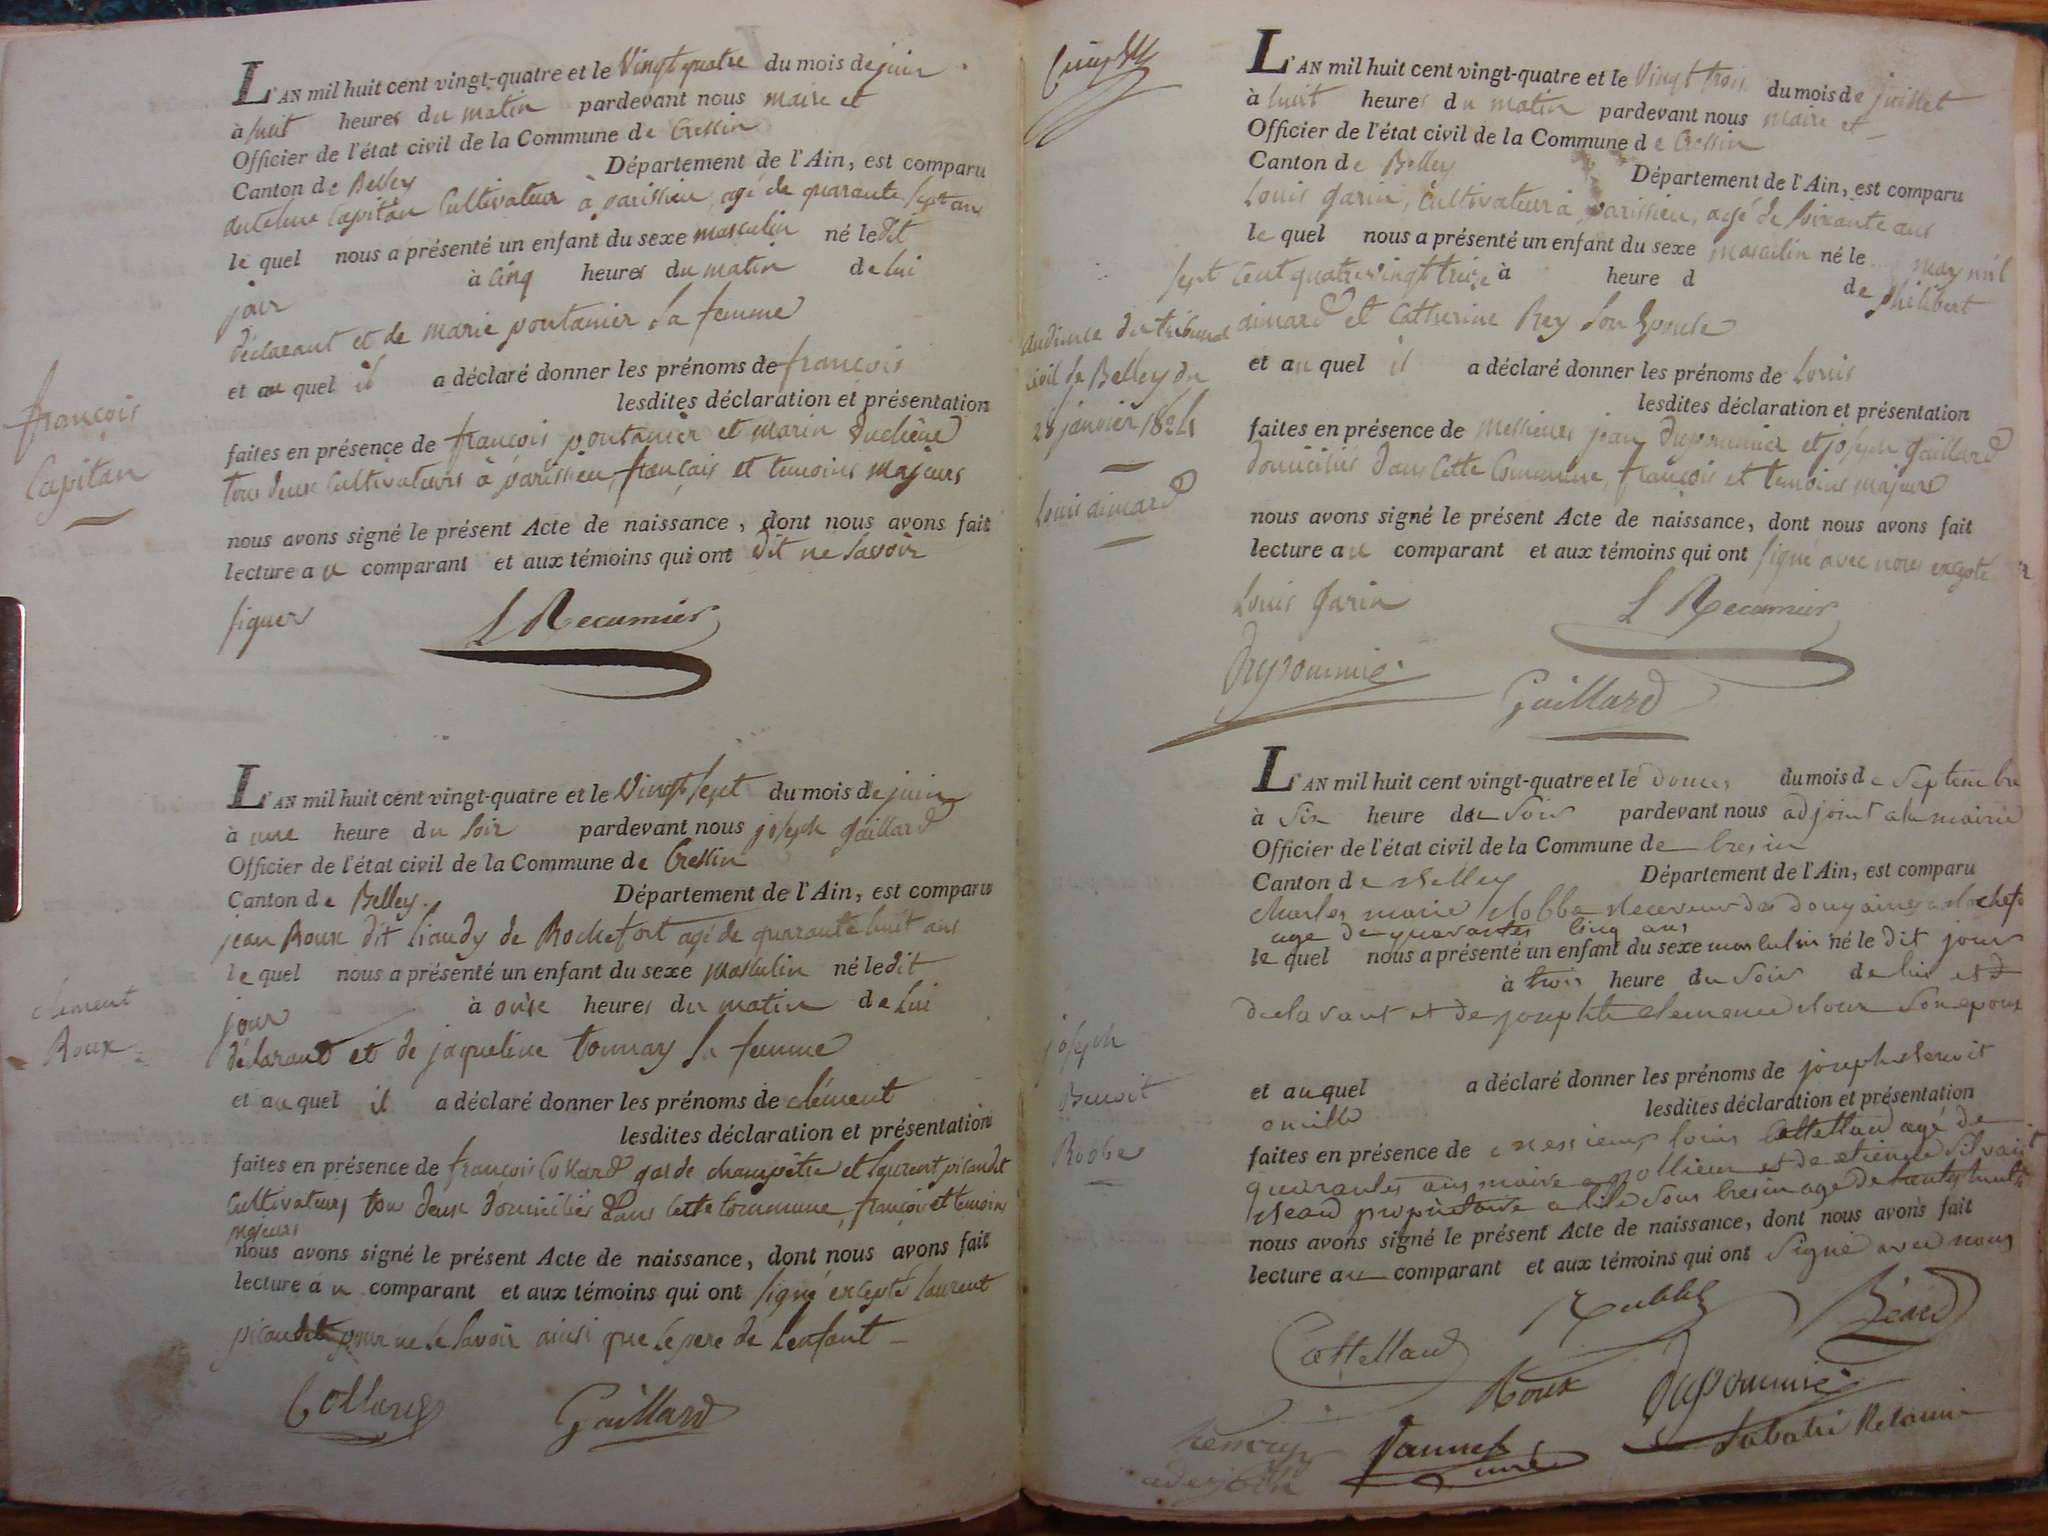 L'AN mil huit cent vingt-quatre et le Vingt quatre du mois de juin
à huit heures du matin pardevant nous maire et
Officier de l'état civil de la Commune de Cressin
Canton de Belley Département de l'Ain, est comparu
antelme Capitan Cultivateur à parissieu, agé de quarante sept ans
le quel nous a présenté un enfant du sexe masculin né ledit
jour à cinq heures du matin de lui
déclarant et de marie pontanier sa femme
et au quel il a déclaré donner les prénoms de françois
lesdites déclaration et présentation
faites en présence de françois pontanier et marin Duchêne
tous deux Cultivateurs à parissieu, français et temoins majeurs
nous avons signé le présent Acte de naissance, dont nous avons fait
lecture au comparant et aux témoins qui ont dit ne savoir
signer
L Recamier
françois
Capitan
L'AN mil huit cent vingt-quatre et le Vingt sept du mois de juin
à une heure du soir pardevant nous joseph Gaillard
Officier de l'état civil de la Commune de Cressin
Canton de Belley. Département de l'Ain, est comparu
jean Roux dit Liaudy de Rochefort agé de quarante huit ans
le quel nous a présenté un enfant du sexe masculin né ledit
jour à onse heures du matin de lui
déclarant et de jaqueline tonnary sa femme
et au quel il a déclaré donner les prénoms de clément
lesdites déclaration et présentation
faites en présence de françois Collard garde champêtre et laurent picaudet
Cultivateurs tous deux domiciliés dans cette commune, françois et temoins
majeurs
nous avons signé le présent Acte de naissance, dont nous avons fait
lecture au comparant et aux témoins qui ont signé excepté laurent
picaudet pour ne le savoir ainsi que le pere de l'enfant
Collard Gaillard
clement
Roux
L'AN mil huit cent vingt-quatre et le Vingt trois du mois de juillet
à huit heures du matin pardevant nous maire et
Officier de l'état civil de la Commune de Cressin
Canton de Belley Département de l'Ain, est comparu
Louis Garin, Cultivateur à parissieu, agé de soixante ans
le quel nous a présenté un enfant du sexe masculin né le may mil
sept cent quatre vingt treize à heure d de philibert
aimard et Catherine Rey son Epouse
et au quel il a déclaré donner les prénoms de Louis
lesdites déclaration et présentation
faites en présence de messieurs jean Dupommier et joseph Gaillard
domiciliés dans cette Commune, françois et temoins majeurs
nous avons signé le présent Acte de naissance, dont nous avons fait
lecture au comparant et aux témoins qui ont signé avec nous excepté
Louis Garin L Recamier
Dupommié
Gaillard
audience du tribunal
civil de Belley du
28 janvier 1824
Louis aimard
L'AN mil huit cent vingt-quatre et le douces du mois de Septembre
à six heure du soir pardevant nous adjoint a la mairie
Officier de l'état civil de la Commune de Cresin
Canton de Belley Département de l'Ain, est comparu
Charles marie Robbe Receveur des douyaines a Rochefo
age de quarantes cinq ans
le quel nous a présenté un enfant du sexe masculin né le dit jour
à trois heure du soir de lui et d
declarant et de josephte clemence Roux son epous
et au quel a déclaré donner les prénoms de joseph Benoit
lesdites déclaration et présentation
faites en présence de messieurs louis Cattelland agé de
quarantes ans maire a pollieu et de etienne Silvain
Beard propriétaire a lile sous Cresin age de trentes huit
nous avons signé le présent Acte de naissance, dont nous avons fait
lecture au comparant et aux témoins qui ont Signé avec nous
Cattelland Robbe Béard
Roux Dupommié
Jannet curé
joseph
Benoit
Robbe